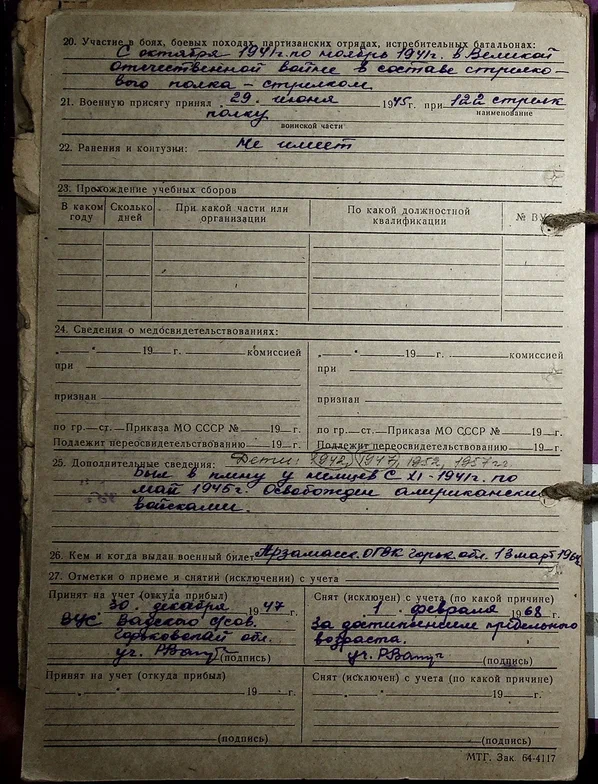 20. Участие в боях, боевых походах, партизанских отрядах, истребительных батальонах:
С октября 1941г. по ноябрь 1941г. в Великой
отечественной войне в составе стрелко-
вого полка – стрелком.
21. Военную присягу принял 29. июня 1945г. при 122 стрелк
наименование
полку
воинской части
22. Ранения и контузии: Не имеет
23. Прохождение учебных сборов
В каком году Сколько дней При какой части или организации По какой должностной квалификации № ВУ
24. Сведения о медосвидетельствованиях:
„ — " — 19 — г. — комиссией „ — " — 19 — г. — комиссией
при при
признан признан
по гр.—ст.—Приказа МО СССР № — 19 — г. по гр.—ст.—Приказа МО СССР № — 19 — г.
Подлежит переосвидетельствованию — 19 — г. Подлежит переосвидетельствованию — 19 — г.
25. Дополнительные сведения: Дети: 1942, 1947, 1952, 1957 гг
Был в плену у немцев с XI-1941г. по
май 1945г. Освобожден американски
войсками.
26. Кем и когда выдан военный билет Арзамасс. ОГВК Горьк. обл. 13 март 1964
27. Отметки о приеме и снятии (исключении) с учета
Принят на учет (откуда прибыл) Снят (исключен) с учета (по какой причине)
30. декабря 1947 1. февраля 1968 г.
ВУС Вадского с/сов. За достижением предельного
Горьковской обл. возраста.
уч. (подпись) уч. (подпись)
Принят на учет (откуда прибыл) Снят (исключен) с учета (по какой причине)
„ — " — 19 — г. „ — " — 19 — г.
(подпись) (подпись)
МТГ. Зак. 64-4117